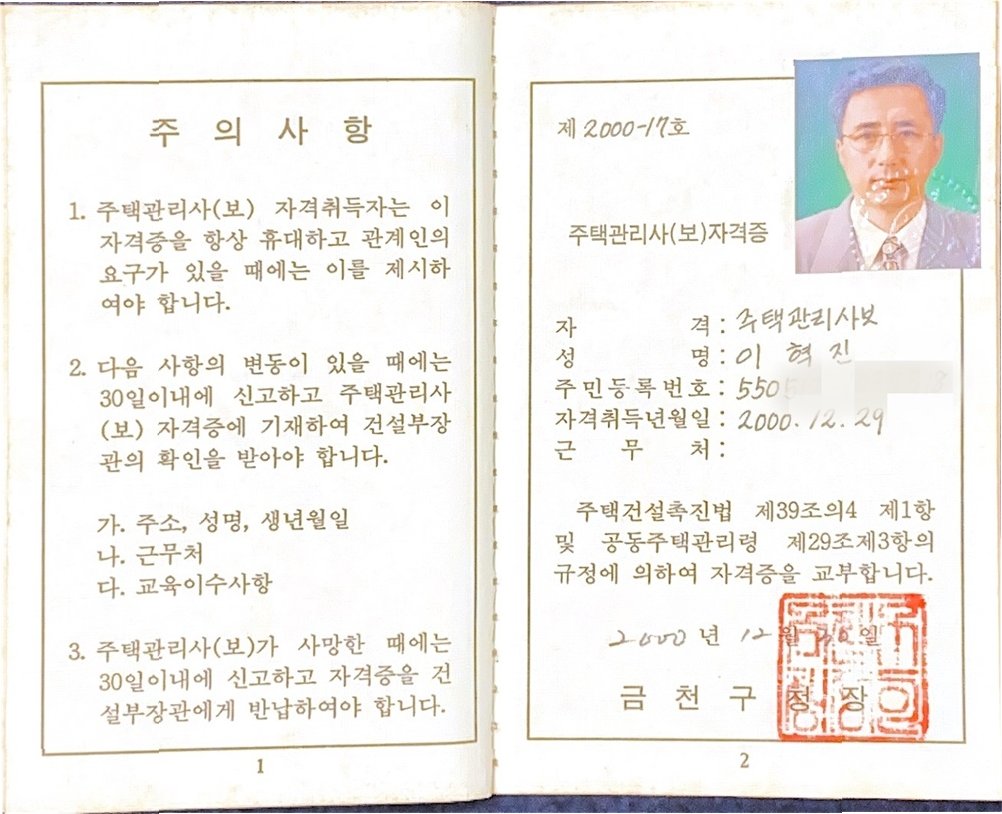 주 의 사 항
1. 주택관리사(보) 자격취득자는 이
자격증을 항상 휴대하고 관계인의
요구가 있을 때에는 이를 제시하
여야 합니다.
2. 다음 사항의 변동이 있을 때에는
30일이내에 신고하고 주택관리사
(보) 자격증에 기재하여 건설부장
관의 확인을 받아야 합니다.
가. 주소, 성명, 생년월일
나. 근무처
다. 교육이수사항
3. 주택관리사(보)가 사망한 때에는
30일이내에 신고하고 자격증을 건
설부장관에게 반납하여야 합니다.
1
제 2000-17호
주택관리사(보)자격증
자 격 : 주택관리사보
성 명 : 이 혁 진
주민등록번호 : 5505
자격취득년월일 : 2000. 12. 29
근 무 처 :
주택건설촉진법 제39조의4 제1항
및 공동주택관리령 제29조제3항의
규정에 의하여 자격증을 교부합니다.
2000 년 12 월 일
금 천 구 청 장
2